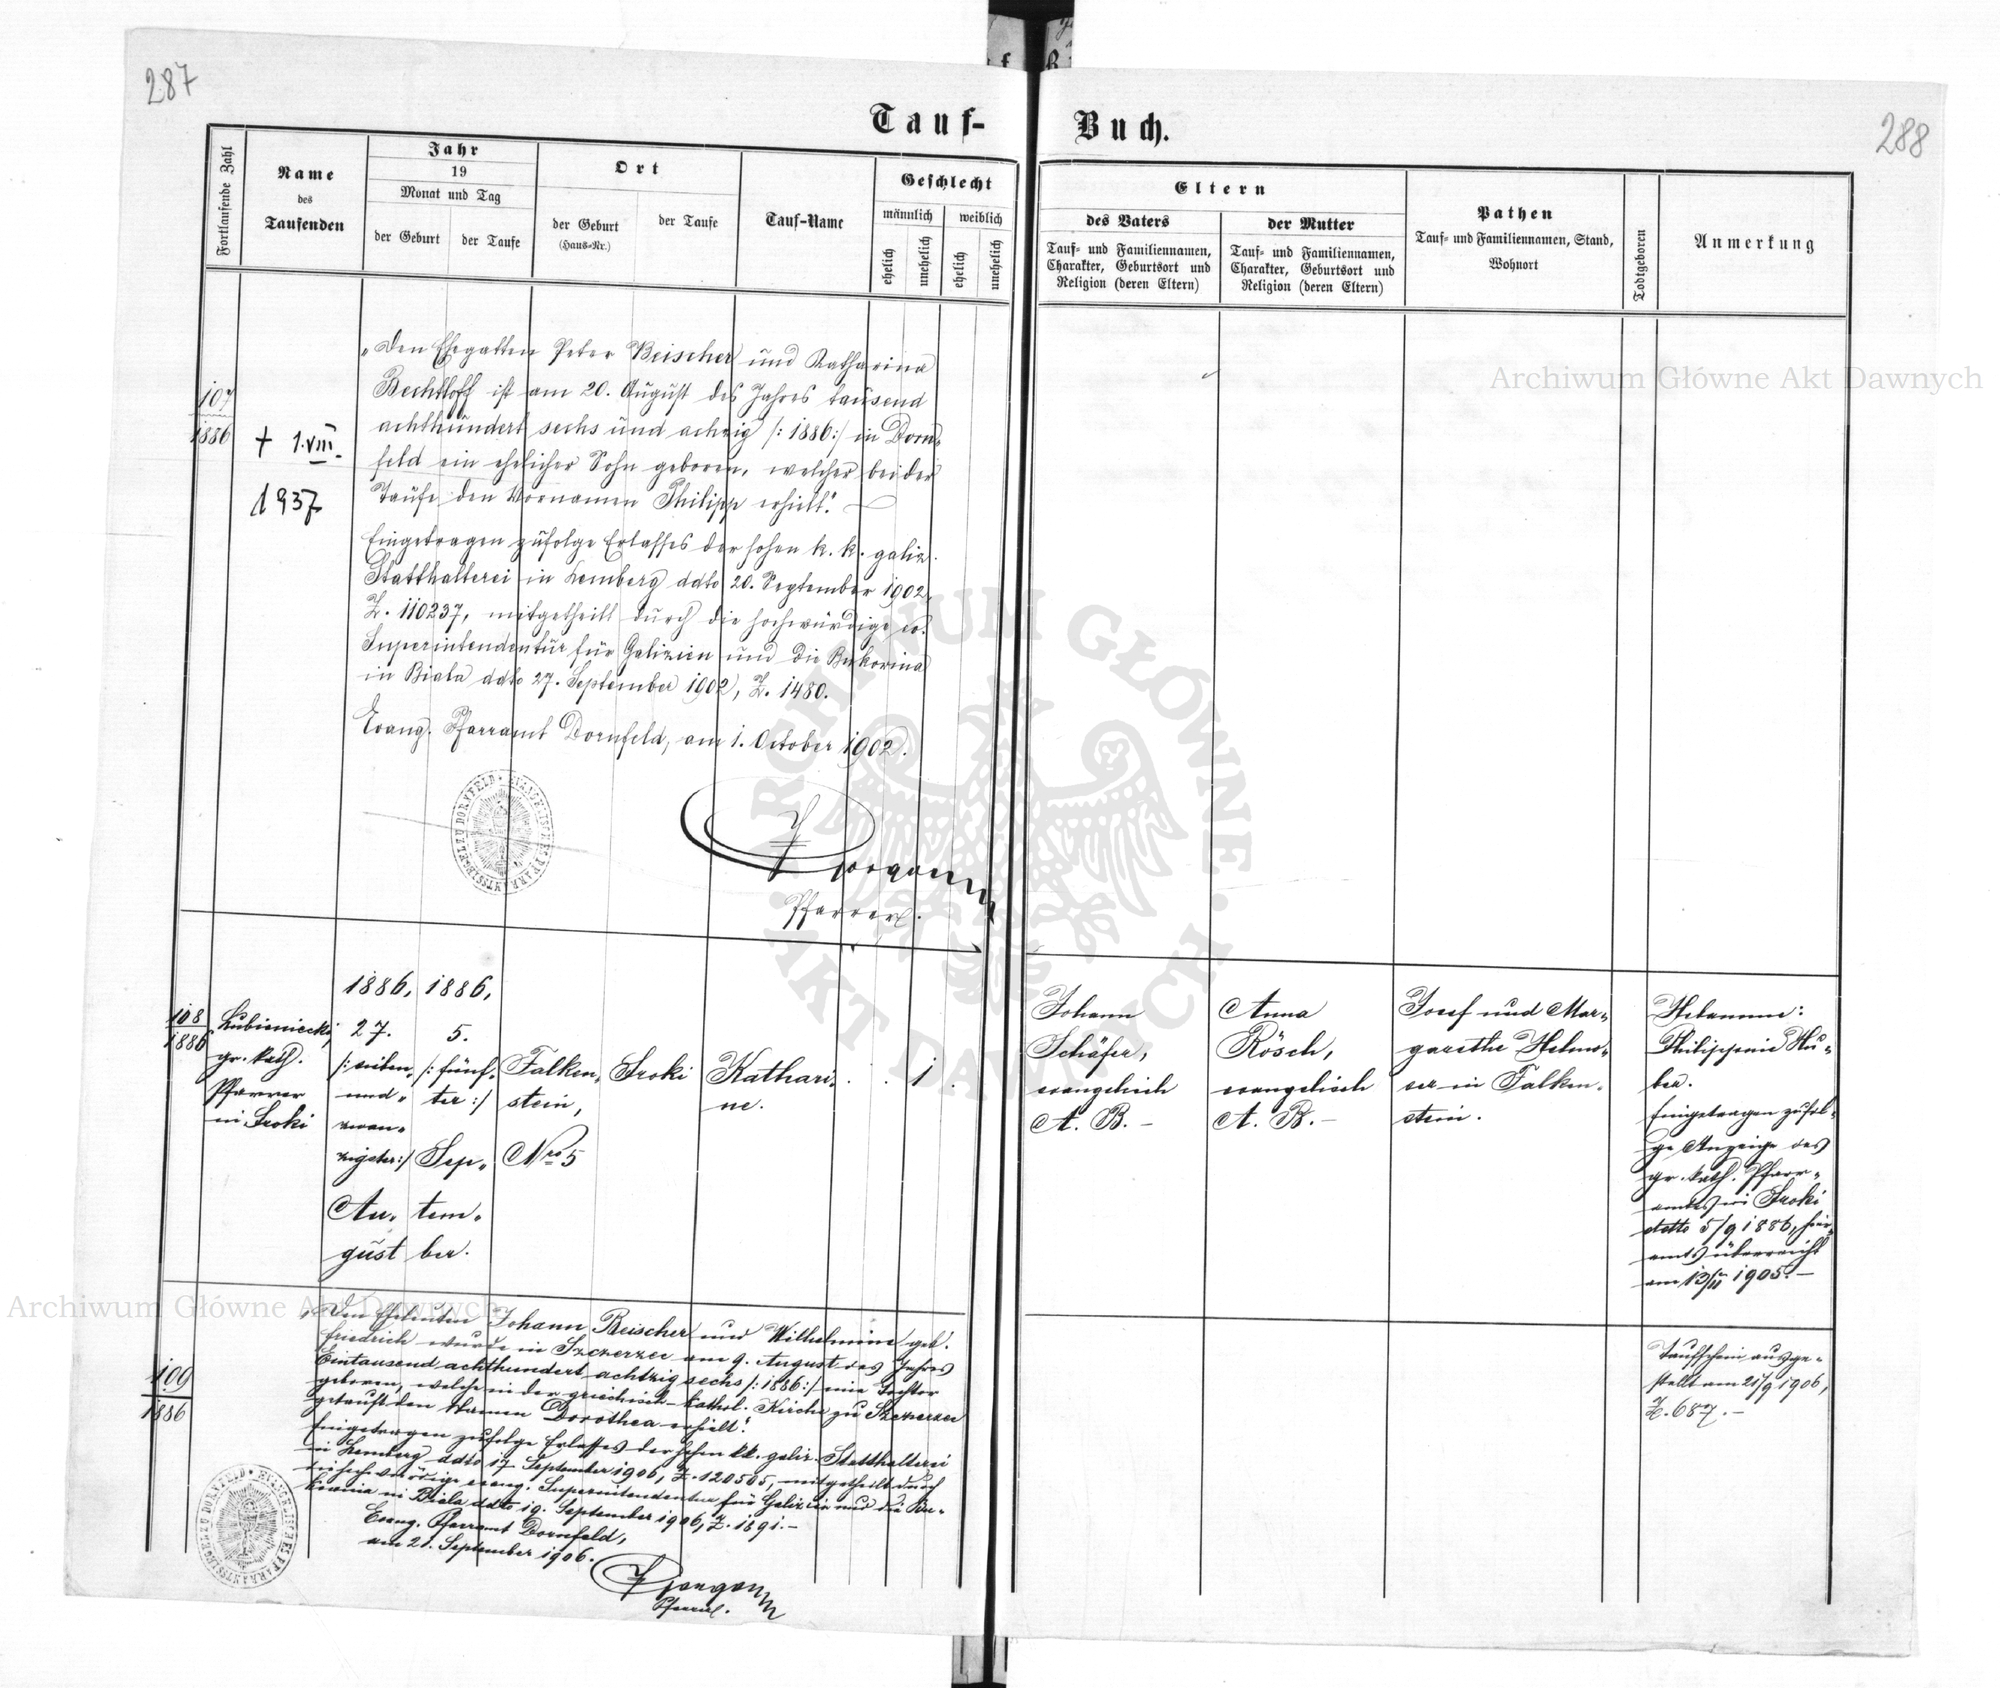 287
288
Tauf-
Buch.
Fortlaufende Zahl
Name
des
Taufenden
Jahr
19
Monat und Tag
der Geburt
der Taufe
Ort
der Geburt
(Haus-Nr.)
der Taufe
Tauf-Name
Geschlecht
männlich
weiblich
ehelich
unehelich
ehelich
unehelich
Eltern
des Vaters
Tauf- und Familiennamen,
Charakter, Geburtsort und
Religion (deren Eltern)
der Mutter
Tauf- und Familiennamen,
Charakter, Geburtsort und
Religion (deren Eltern)
Pathen
Tauf- und Familiennamen, Stand,
Wohnort
Todtgeboren
Anmerkung
107
1886
+ 1.VIII.
1937
„Den Ehegatten Peter Beischer und Katharina
Bechtloff ist am 20. August des Jahres tausend
achthundert sechs und achzig /:1886:/ in Dorn-
feld ein ehelicher Sohn geboren, welcher bei der
Taufe den Vornamen Philipp erhielt."
Eingetragen zufolge Erlasses der hohen k. k. galiz.
Statthalterei in Lemberg ddto 20. September 1902,
Z. 110237, mitgetheilt durch die hochwürdige ev.
Superintendentur für Galizien und die Bukowina
in Biala ddto 27. September 1902, Z. 1480.
Evang. Pfarramt Dornfeld, am 1. October 1902.
EVANGELISCHES PFARRAMTSSIEGEL ZU DORNFELD
Pfarrer.
108
1886
Lubieniecki,
gr. kath.
Pfarrer
in Sroki
1886,
27.
/:sieben-
und-
zwan-
zigster:/
Au-
gust
1886,
5.
/:fünf-
ter:/
Sep-
tem-
ber.
Falken-
stein,
Nro 5
Sroki
Kathari-
ne.
1
Johann
Schäfer,
evangelisch
A. B. –
Anna
Rösch,
evangelisch
A. B. –
Josef und Mar-
garethe Helmo-
ser in Falken-
stein.
Hebamme:
Philippine Hu-
ber.
Eingetragen zufol-
ge Anzeige des
gr. kath. Pfarr-
amtes in Sroki
ddto 5/9 1886, hier-
amts überreicht
am 13/11 1905. –
109
1886
„Den Eheleuten Johann Beischer und Wilhelmine geb.
Friedrich wurde in Szczerzec am 9. August des Jahres
Eintausend achthundert achtzig sechs /:1886:/ eine Tochter
geboren, welche in der griechisch-kathol. Kirche zu Szczerzec
getauft den Namen Dorothea erhielt."
Eingetragen zufolge Erlasses der hohen kk. galiz. Statthalterei
in Lemberg ddto 17. September 1906, Z. 120505, mitgetheilt durch
die hochwürdige evang. Superintendentur für Galizien und die Bu-
kowina in Biala ddto 19. September 1906, Z. 1891. –
Evang. Pfarramt Dornfeld,
am 21. September 1906.
Pfarrer.
EVANGELISCHES PFARRAMTSSIEGEL ZU DORNFELD
Taufschein ausge-
stellt am 21/9 1906,
Z. 687. –
Archiwum Główne Akt Dawnych
Archiwum Główne Akt Dawnych
ARCHIWUM GŁÓWNE AKT DAWNYCH